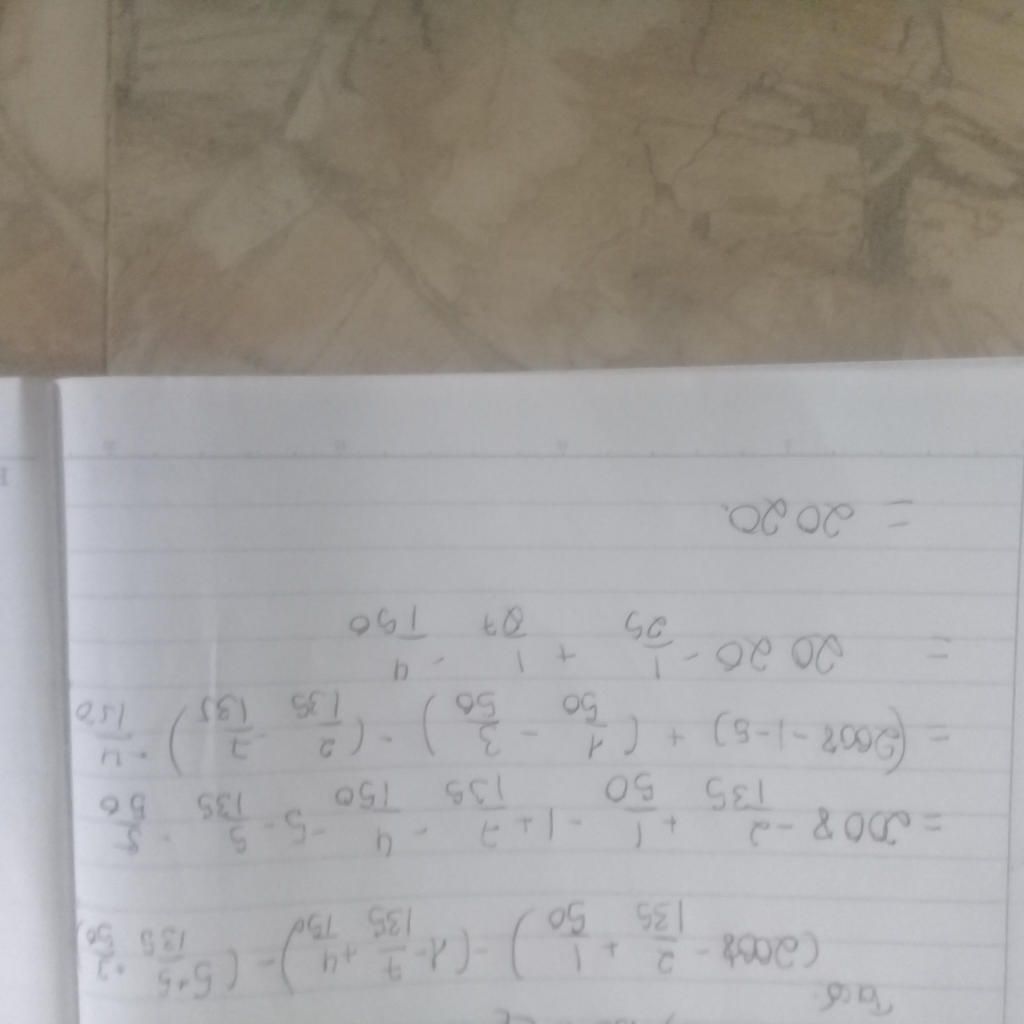 Ta có
(2008 - 2/135 + 1/50) - (1 - 7/135 + 4/150) - (5 + 5/135
= 2008 - 2/135 + 1/50 - 1 + 7/135 - 4/150 - 5 - 5/135
= (2008 - 1 - 5) + (1/50 - 3/50) - (2/135 - 7/135)
= 2020 - 1/25 + 1/27 - 4/150
= 2020.